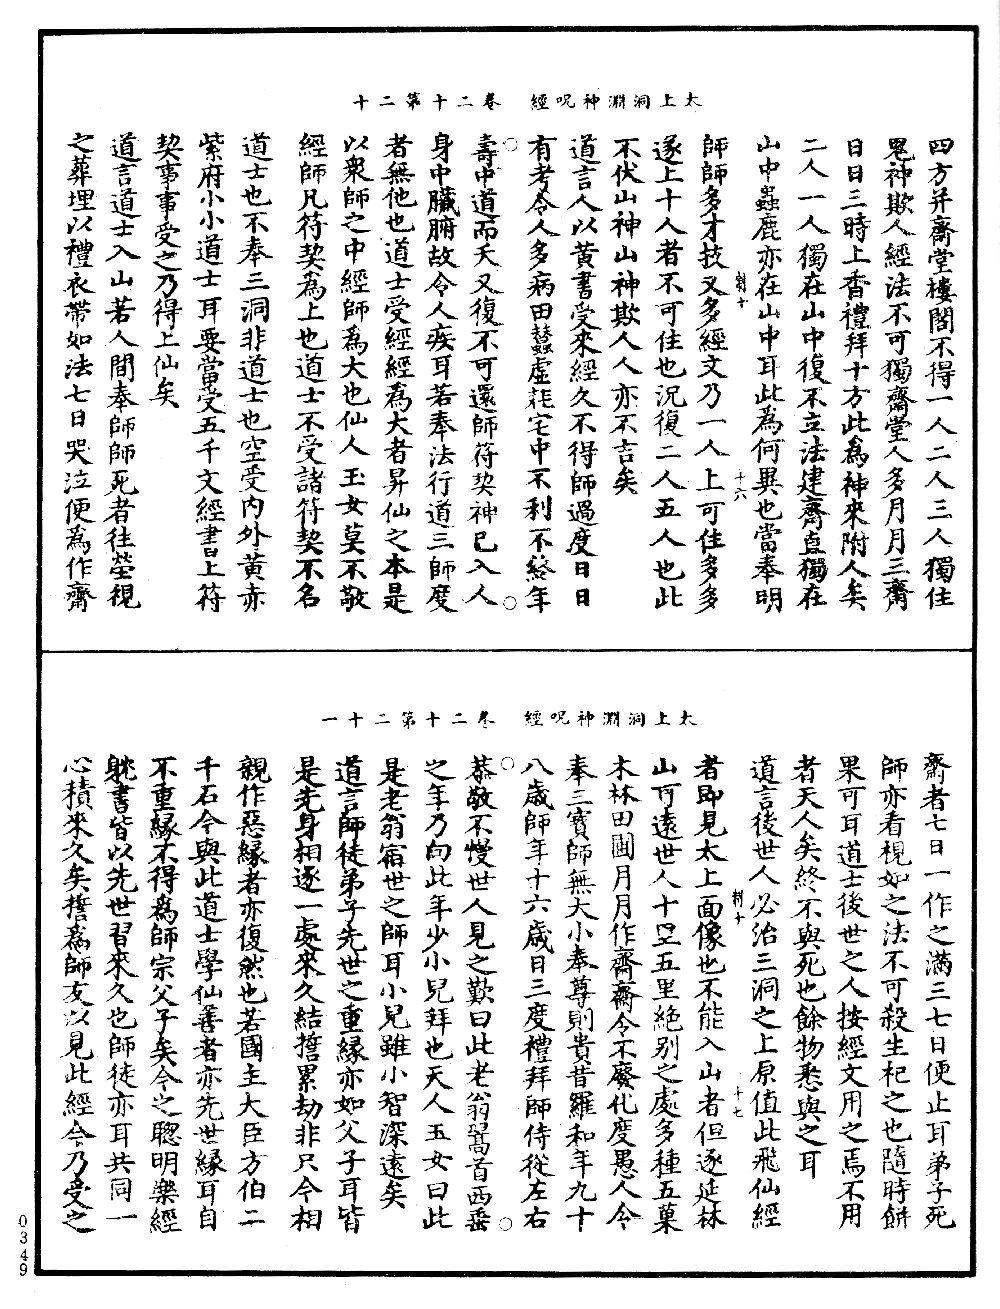 太上洞淵神呪經　卷二十第二十
四方并齋堂樓閣不得一人二人三人獨住
鬼神欺人經法不可獨齋堂人多月月三齋
日日三時上香禮拜十方此為神來附人矣
二人一人獨在山中復不立法建齋直獨在
山中蟲鹿亦在山中耳此為何異也當奉明
朝十　十六
師師多才技又多經文乃一人上可住多多
遂上十人者不可住也況復二人五人也此
不伏山神山神欺人人亦不吉矣
道言人以黃書受來經久不得師過度日日
有考令人多病田蠶虛耗宅中不利不終年
壽中道而夭又復不可還師符契神已入人
身中臟腑故令人疾耳若奉法行道三師度
者無他也道士受經經為大者昇仙之本是
以衆師之中經師為大也仙人玉女莫不敬
經師凡符契為上也道士不受諸符契不名
道士也不奉三洞非道士也空受內外黃亦
紫府小小道士耳要當受五千文經書上符
契事事受之乃得上仙矣
道言道士入山若人間奉師師死者往塋視
之葬埋以禮衣帶如法七日哭泣便為作齋
太上洞淵神呪經　卷二十第二十一
齋者七日一作之滿三七日便止耳弟子死
師亦看視如之法不可殺生祀之也隨時餅
果可耳道士後世之人按經文用之焉不用
者天人矣終不與死也餘物悉與之耳
道言後世人必治三洞之上原值此飛仙經
朝十　十七
者即見太上面像也不能入山者但逐延林
山可遠世人十里五里絕別之處多種五菓
木林田園月月作齋齋令不廢化度愚人令
奉三寶師無大小奉尊則貴昔羅和年九十
八歲師年十六歲日三度禮拜師侍從左右
恭敬不慢世人見之歎曰此老翁㬥首西垂
之年乃向此年少小兒拜也天人玉女曰此
是老翁宿世之師耳小兒雖小智深遠矣
道言師徒弟子先世之重緣亦如父子耳皆
是先身相逐一處來久結誓累劫非只今相
親作惡緣者亦復然也若國主大臣方伯二
千石今與此道士學仙善者亦先世緣耳自
不重緣不得為師宗父子矣今之聰明樂經
躭書皆以先世習來久也師徒亦耳共同一
心積來久矣誓為師友以見此經今乃受之
0349